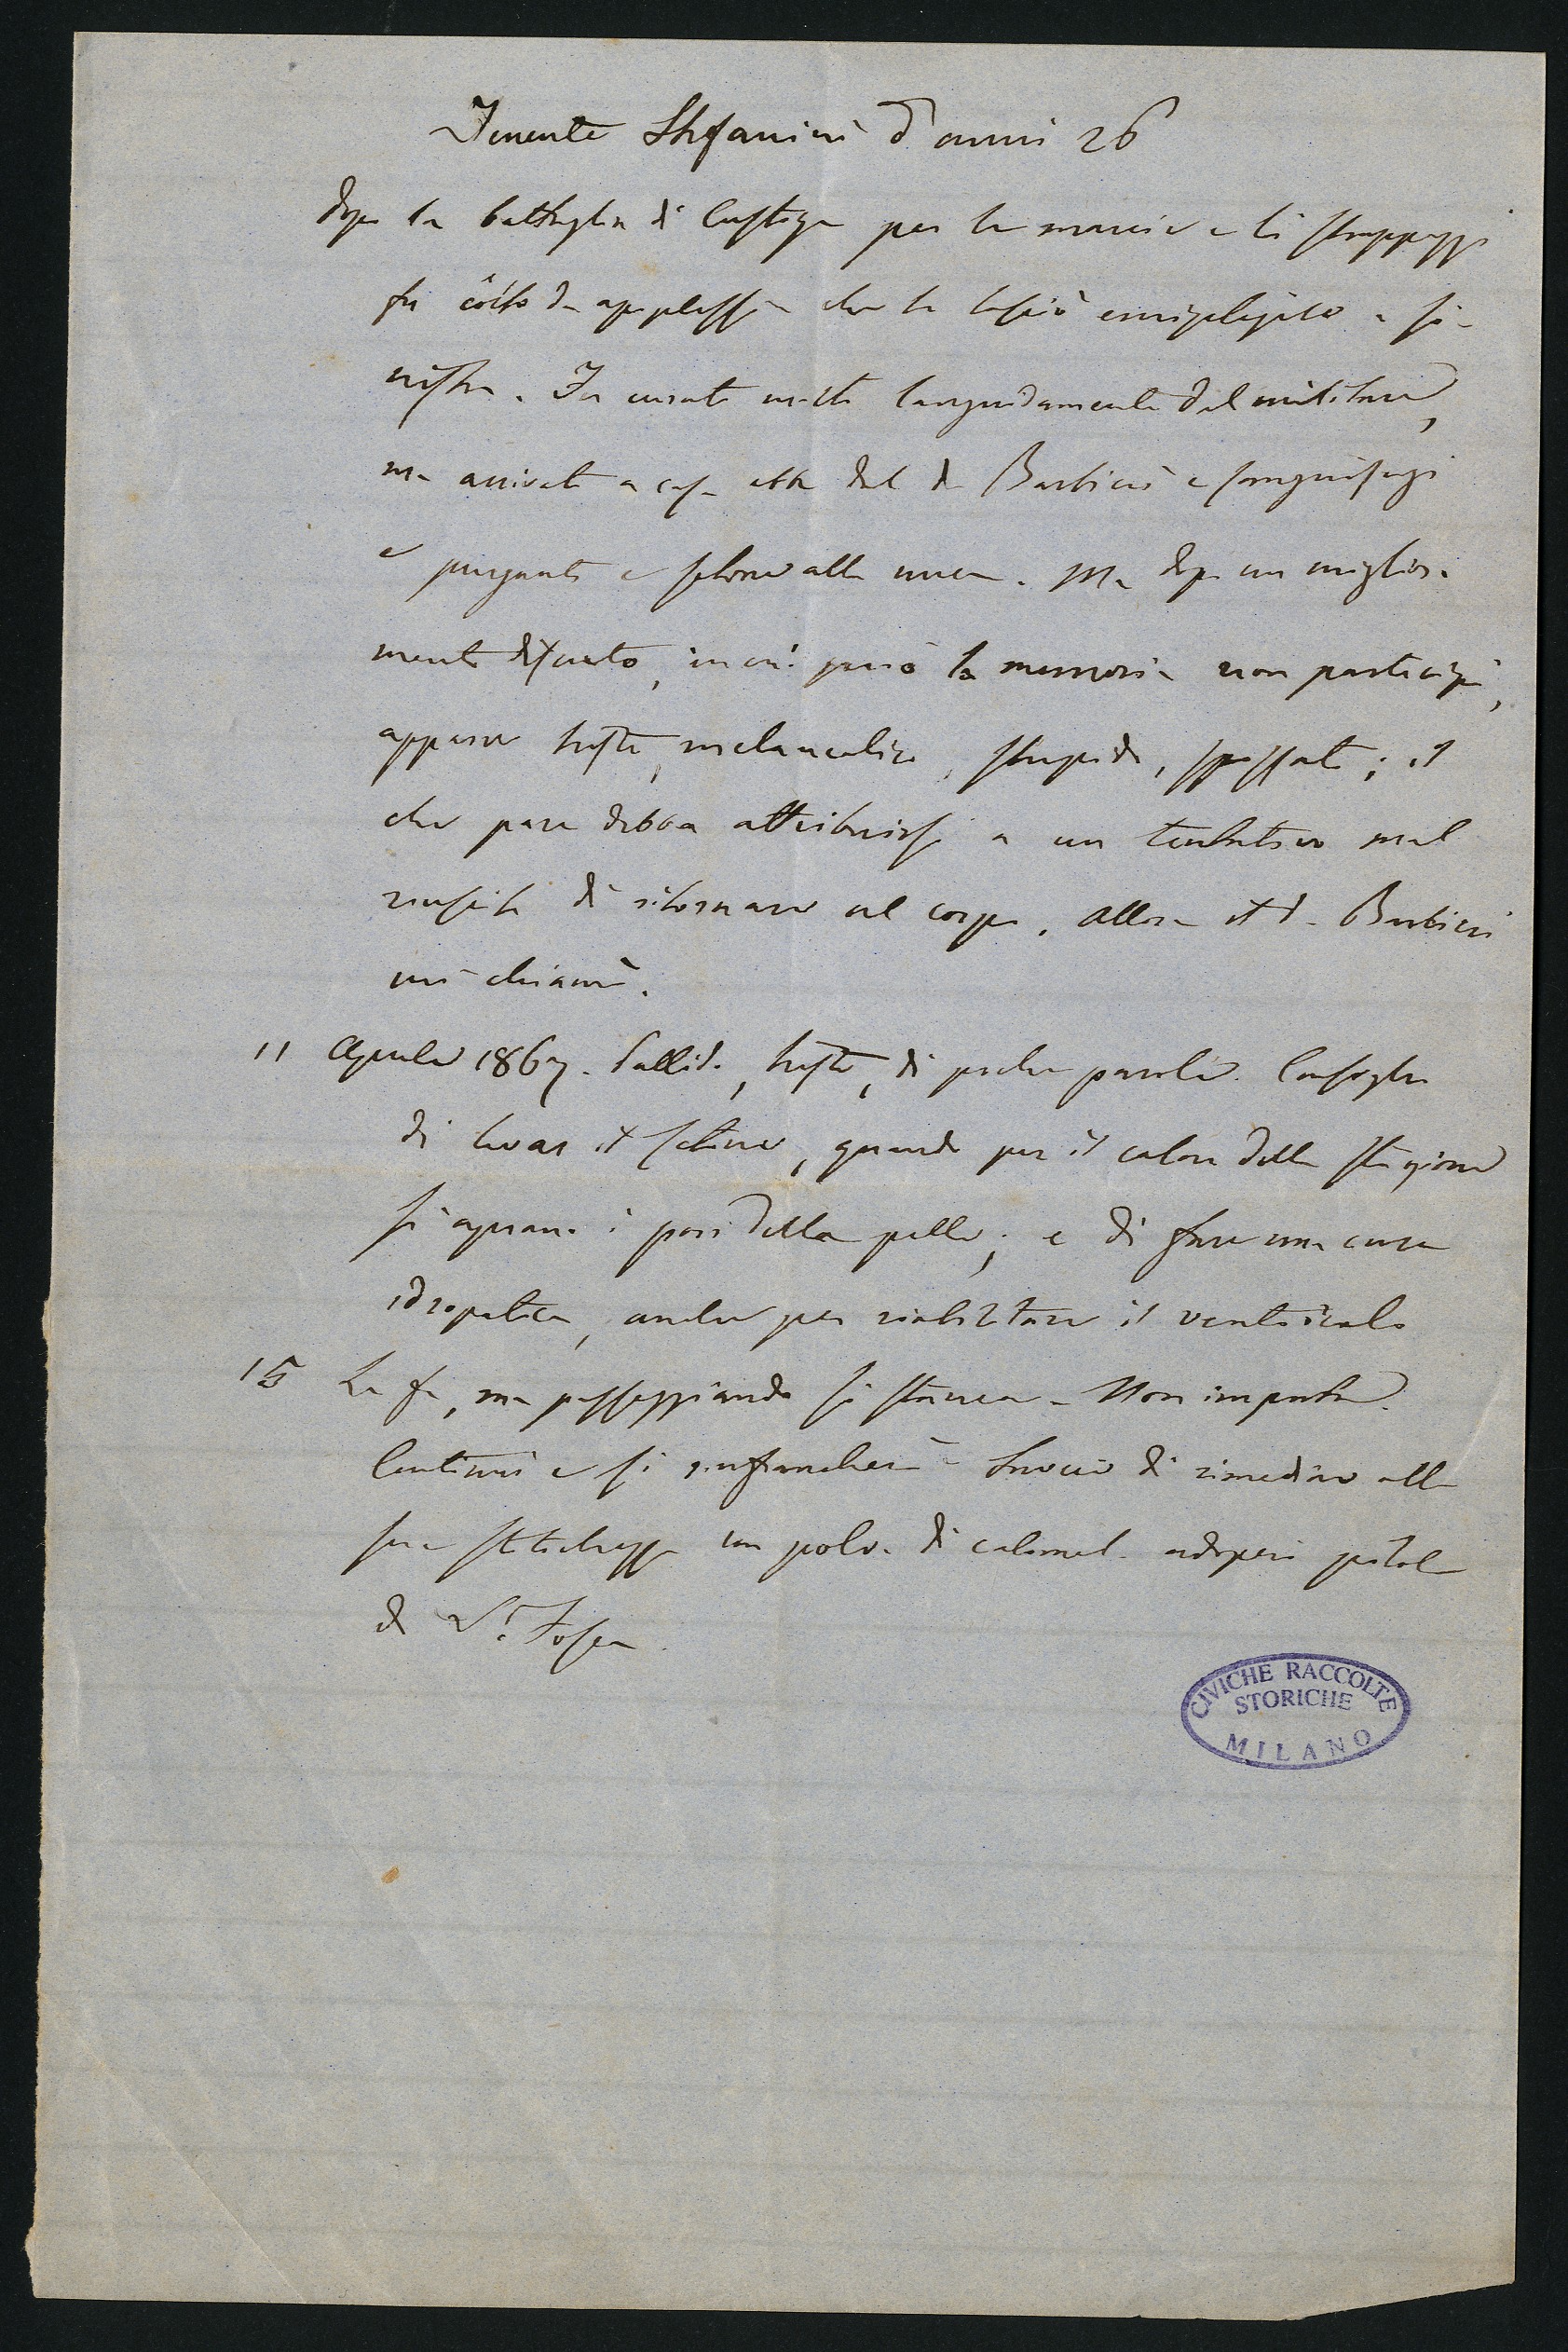 Tenente Stefanini d'anni 26
dopo la battaglia di Custoza per le marcie e li strappazzi
fu côlto da apoplessia che lo lasciò emiplegico a si-
nistra. Fu curato molto languidamente dal militare,
ma arrivato a casa ebbe dal dr Barbieri e sanguisughe
e purganti e setone alla nuca. Ma dopo un migliora
mento discreto, in cui però la memoria non partecipò,
apparve triste, melancolico, stupido, spossato; il
che pare debba attribuirsi a un tentativo mal
riuscito di ritornare al corpo. Allora il dr Barbieri
mi chiamò.
11 Aprile 1867. Pallido, triste, di poche parole. Consiglio
di levar il setone, quando per il calore della stagione
si aprano i pori della pelle; e di fare una cura
idropatica, anche per riabilitare il ventricolo
15 La fa, ma passeggiando si stanca - Non importa.
Continui e si rinfrancherà - Invece di rimediare alla
sua stitichezza con polv. di calomel. adoperi pillole
di Sa Fosca.
CIVICHE RACCOLTE
STORICHE
MILANO